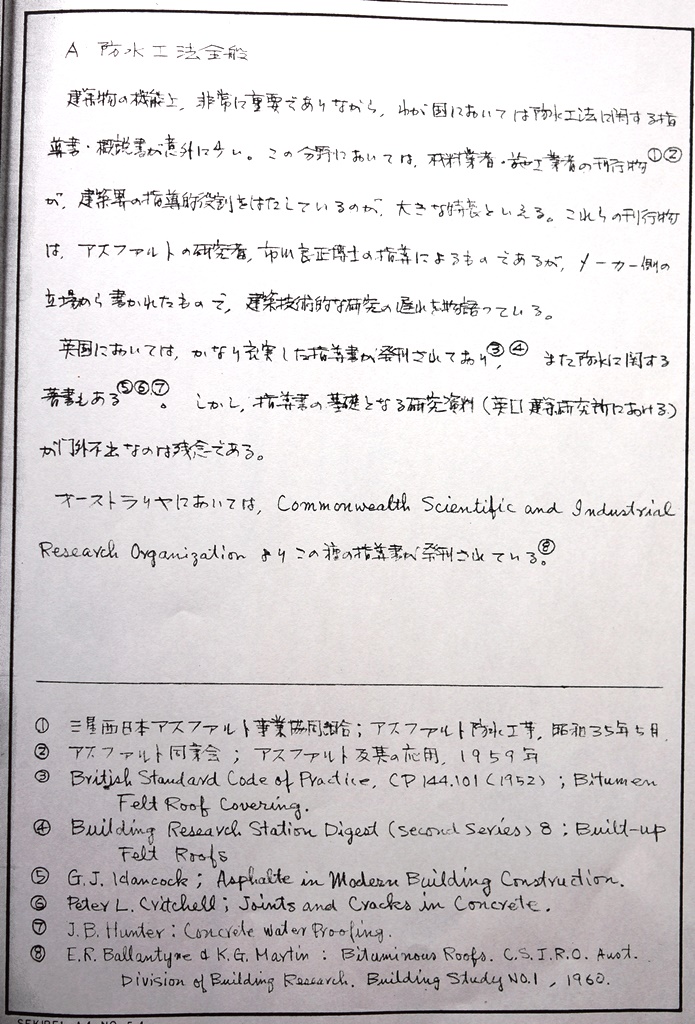 A 防水工法全般
建築物の機能上，非常に重要でありながら，わが国においては防水工法に関する指
導書・概説書が意外に少い。この分野においては，材料業者・施工業者の刊行物①②
が，建築界の指導的役割をはたしているのが，大きな特長といえる。これらの刊行物
は，アスファルトの研究者，市川良正博士の指導によるものであるが，メーカー側の
立場から書かれたもので，建築技術的な研究の遅れを物語っている。
英国においては，かなり充実した指導書が発刊されており③，④ また防水に関する
著書もある⑤⑥⑦。 しかし，指導書の基礎となる研究資料（英国建築研究所における）
が門外不出なのは残念である。
オーストラリヤにおいては，Commonwealth Scientific and Industrial
Research Organization よりこの種の指導書が発刊されている。⑧
① 三星西日本アスファルト事業協同組合；アスファルト防水工事，昭和35年5月．
② アスファルト同業会；アスファルト及其の応用，1959年
③ British Standard Code of Practice, CP 144.101 (1952) ; Bitumen
Felt Roof Covering.
④ Building Research Station Digest (second series) 8 ; Built-up
Felt Roofs
⑤ G.J. Hancock ; Asphalte in Modern Building Construction.
⑥ Peter L. Critchell ; Joints and Cracks in Concrete.
⑦ J.B. Hunter : Concrete Water Proofing.
⑧ E.R. Ballantyne & K.G. Martin : Bituminous Roofs. C.S.I.R.O. Aust.
Division of Building Research. Building Study NO.1 , 1960.